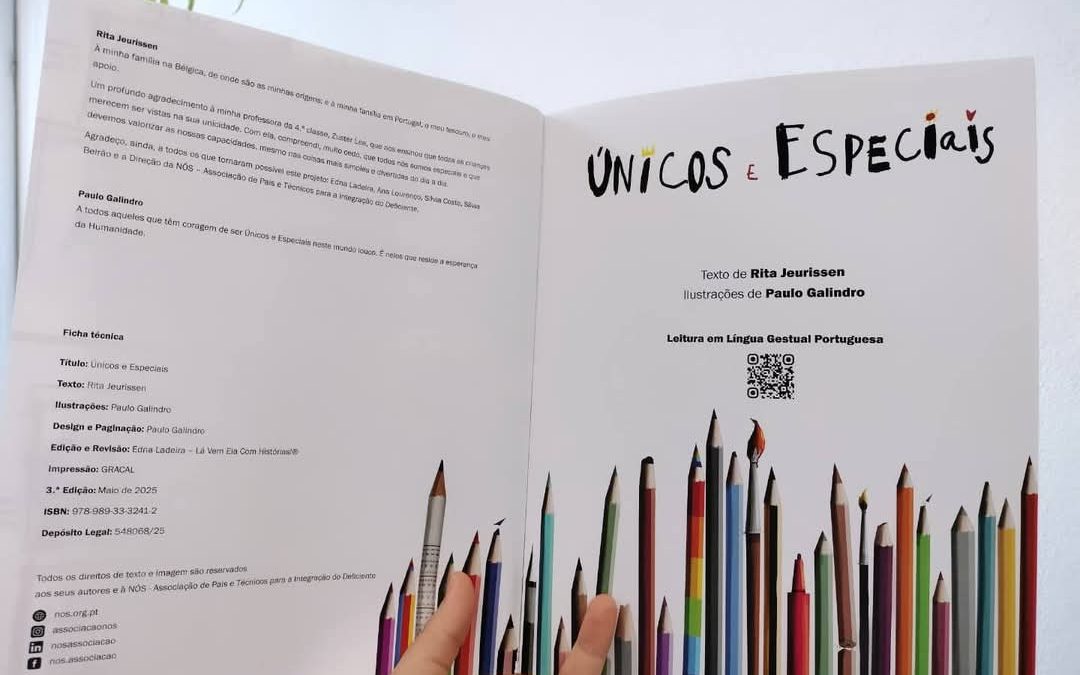 Rita Jeurissen
À minha família na Bélgica, de onde são as minhas origens; e à minha família em Portugal, o meu tesouro, o meu
apoio.
Um profundo agradecimento à minha professora da 4.ª classe, Zuster Lea, que nos ensinou que todas as crianças
merecem ser vistas na sua unicidade. Com ela, compreendi, muito cedo, que todos nós somos especiais e que
devemos valorizar as nossas capacidades, mesmo nas coisas mais simples e divertidas do dia a dia.
Agradeço, ainda, a todos os que tornaram possível este projeto: Edna Ladeira, Ana Lourenço, Sílvia Costa, Sílvia
Berrão e a Direção da NÓS – Associação de Pais e Técnicos para a Integração do Deficiente.
Paulo Galindro
A todos aqueles que têm coragem de ser Únicos e Especiais neste mundo louco. É neles que reside a esperança
da Humanidade.
Ficha técnica
Título: Únicos e Especiais
Texto: Rita Jeurissen
Ilustrações: Paulo Galindro
Design e Paginação: Paulo Galindro
Edição e Revisão: Edna Ladeira – Lá Vem Ela Com Histórias!®
Impressão: GRACAL
3.ª Edição: Maio de 2025
ISBN: 978-989-33-3241-2
Depósito Legal: 548068/25
Todos os direitos de texto e imagem são reservados
aos seus autores e à NÓS - Associação de Pais e Técnicos para a Integração do Deficiente
nos.org.pt
associacaonos
nosassociacao
nos.associacao
ÚNICOS E ESPECIAIS
Texto de Rita Jeurissen
Ilustrações de Paulo Galindro
Leitura em Língua Gestual Portuguesa